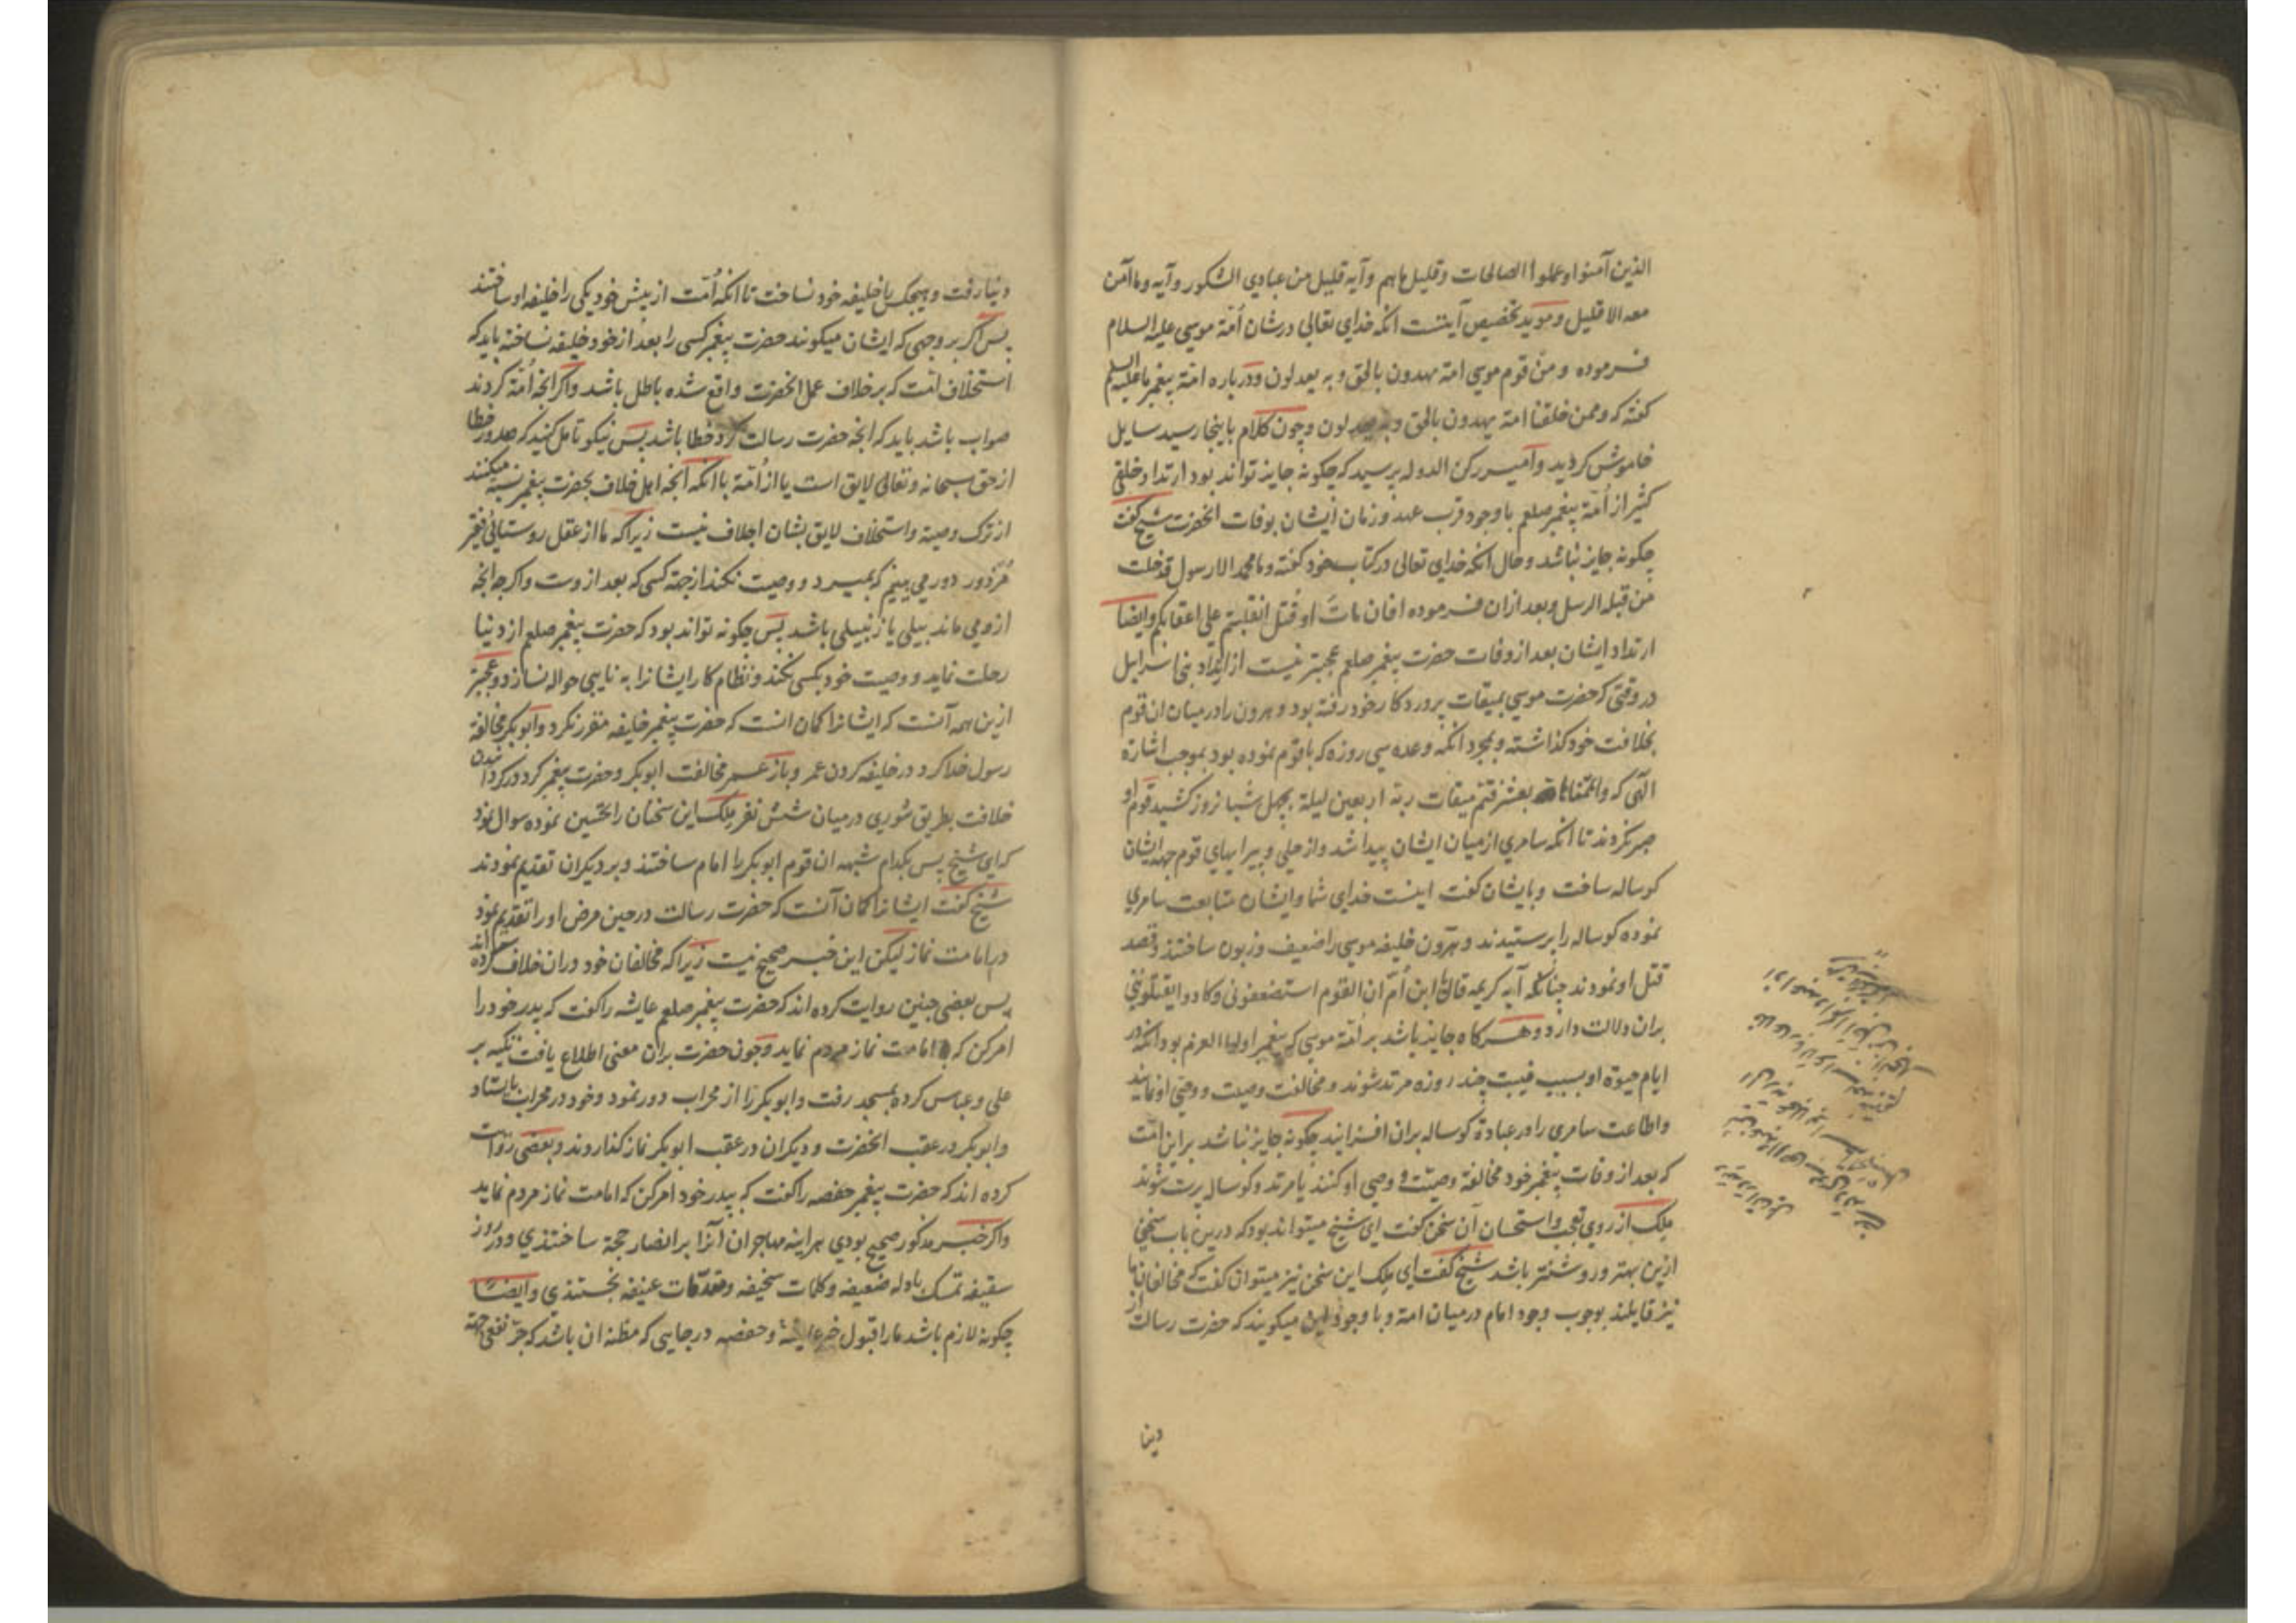 الذین آمنوا وعملوا الصالحات وقلیل ماهم وآیه قلیل من عبادی الشکور وآیه وما آمن
معه الا قلیل ومؤید تخصیص آیتست انکه خدای تعالی درشان اُمّة موسی علیه السلام
فرموده ومن قوم موسی امة یهدون بالحق وبه یعدلون ودرباره امّة پیغمبر ما علیه السلم
کفته که وممن خلقنا امة یهدون بالحق وبه یعدلون وچون کلام باینجا رسید سایل
خاموش کردید وامیر رکن الدوله پرسید که چکونه جایز تواند بود ارتداد خلقی
کثیر از اُمّة پیغمبر صلعم باوجود قرب عهد وزمان ایشان بوفات انحضرت شیخ کفت
چکونه جایز نباشد وحال انکه خدای تعالی در کتاب خود کفته وما محمد الا رسول قد خلت
من قبله الرسل وبعد ازان فرموده افان ماتَ او قُتل انقلبتم علی اعقابکم وایضا
ارتداد ایشان بعد از وفات حضرت پیغمبر صلعم عجبتر نیست از ارتداد بنی اسرایل
در وقتی که حضرت موسی بمیقات پروردکار خود رفته بود وهرون را درمیان ان قوم
بخلافت خود کذاشته وبمجرد انکه وعده سی روزه که باقوم نموده بود بموجب اشارة
الهی که واتممناها بعشر فتم میقات ربه اربعین لیلة بچهل شبانروز کشید قوم او
صبر نکردند تا انکه سامری ازمیان ایشان پیدا شد واز حلی وپیرایهای قوم جهة ایشان
کوساله ساخت وبایشان کفت اینست خدای شما وایشان متابعت سامری
نموده کوساله را پرستیدند وهرون خلیفه موسی را ضعیف وزبون ساختند وقصد
قتل او نمودند چنانکه آیه کریمه قال ابن اُمّ ان القوم استضعفونی وکادوا یقتلوننی
بران دلالت دارد وهرکاه جایز باشد بر اُمّة موسی که پیغمبر اولوا العزم بود انکه در
ایام حیوة او بسبب غیبت چند روزه مرتد شوند ومخالفت وصیت ووصی او نمایند
واطاعت سامری را در عبادة کوساله بران افزایند چکونه جایز نباشد براین امّت
که بعد از وفات پیغمبر خود مخالفة وصیّت و وصی او کنند یا مرتد وکوساله پرست شوند
ملک از روی تعجب واستحسان آن سخن کفت ای شیخ میتواند بود که درین باب سخنی
ازین بهتر وروشنتر باشد شیخ کفت ای ملک این سخن نیز میتوان کفت که مخالفان ما
نیز قایلند بوجوب وجود امام درمیان امة وبا وجود این میکویند که حضرت رسالت از
دینا
دنیا رفت وهیچکس را خلیفه خود نساخت تا انکه اُمّت از پیش خود یکی را خلیفه او ساختند
پس اکر بر وجهی که ایشان میکویند حضرت پیغمبر کسی را بعد از خود خلیفه نساخته باید که
استخلاف امّت که برخلاف عمل انحضرت واقع شده باطل باشد واکر انچه اُمّة کردند
صواب باشد باید که انچه حضرت رسالت کرد خطا باشد پس نیکو تامل کنید که صدور خطا
از حق سبحانه وتعالی لایق است یا از اُمّة با انکه انچه اهل خلاف بحضرت پیغمبر نسبة میکنند
از ترک وصیة واستخلاف لایق بشان اجلاف نیست زیراکه ما از عقل روستائی فقیر
مُزدور دور می بینیم که بمیرد ووصیت نکند از جهة کسی که بعد از وست واکرچه انچه
از وی ماند بیلی یا زنبیلی باشد پس چکونه تواند بود که حضرت پیغمبر صلعم از دنیا
رحلت نماید ووصیت خود بکسی نکند ونظام کار ایشانرا به نایبی حواله نسازد وعجبتر
ازین همه آنست که ایشانرا کمان انست که حضرت پیغمبر خلیفه مقرر نکرد وابوبکر مخالفة
رسول خدا کرد در خلیفه کردن عمر وباز عمر مخالفت ابوبکر وحضرت پیغمبر کرد در کردانیدن
خلافت بطریق شوری درمیان شش نفر ملک این سخنان را تحسین نموده سوال نمود
که ای شیخ پس بکدام شبهه ان قوم ابوبکر را امام ساختند وبر دیکران تقدیم نمودند
شیخ کفت ایشانرا کمان آنست که حضرت رسالت درحین مرض او را تقدیم نمود
در امامت نماز لیکن این خبر صحیح نیست زیراکه مخالفان خود دران خلاف کرده اند
پس بعضی چنین روایت کرده اند که حضرت پیغمبر صلعم عایشه را کفت که پدر خود را
امر کن که امامت نماز مردم نماید وچون حضرت بران معنی اطلاع یافت تکیه بر
علی وعباس کرده بمسجد رفت وابوبکر را از محراب دور نمود وخود در محراب بایستاد
وابوبکر در عقب انحضرت ودیکران در عقب ابوبکر نماز کذاروند وبعضی روایت
کرده اند که حضرت پیغمبر حفصه را کفت که بپدر خود امر کن که امامت نماز مردم نماید
واکر خبر مذکور صحیح بودی هراینه مهاجران آنرا بر انصار حجة ساختندی ودر روز
سقیفه تمسک بادله ضعیفه وکلمات سخیفه ومقدّمات عنیفه نجستندی وایضًا
چکونه لازم باشد ما را قبول خبر عایشه وحفصه درجایی که مظنه ان باشد که جرّ نفعی جهة